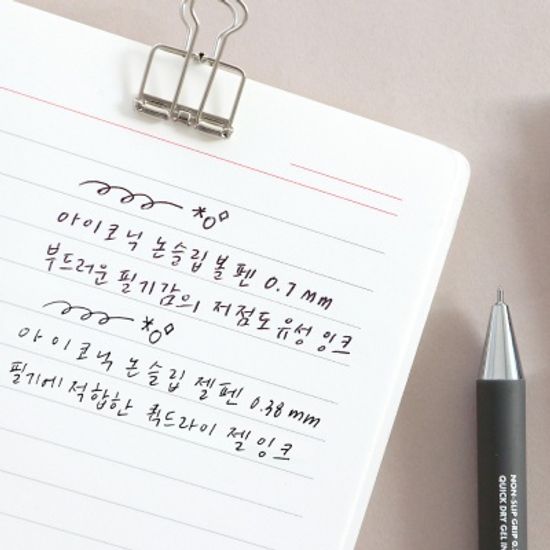 아이코닉 논슬립볼펜 0.7mm
부드러운 필기감의 저점도 유성 잉크
아이코닉 논슬립 젤펜 0.38mm
필기에 적합한 퀵드라이 젤잉크
NON-SLIP GRIP 0.
QUICK DRY GEL IN